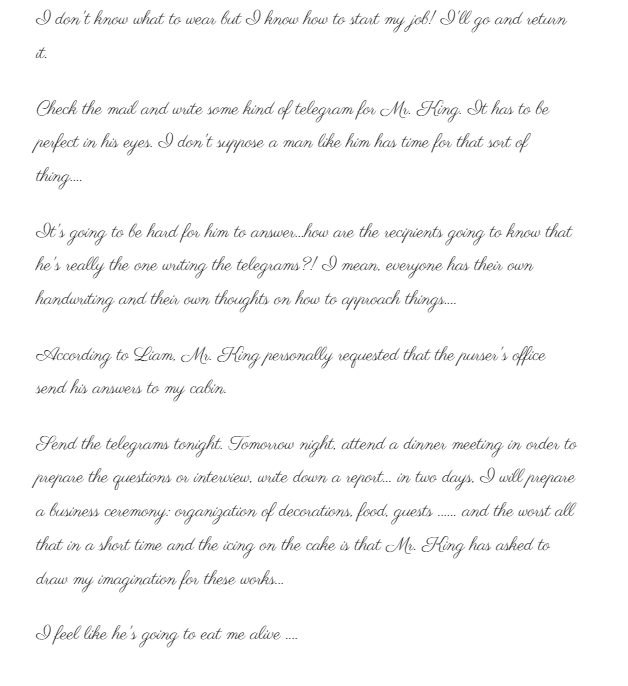 I don't know what to wear but I know how to start my job! I'll go and return
it.
Check the mail and write some kind of telegram for Mr. King. It has to be
perfect in his eyes. I don't suppose a man like him has time for that sort of
thing....
It's going to be hard for him to answer...how are the recipients going to know that
he's really the one writing the telegrams?! I mean, everyone has their own
handwriting and their own thoughts on how to approach things....
According to Liam, Mr. King personally requested that the purser's office
send his answers to my cabin.
Send the telegrams tonight. Tomorrow night, attend a dinner meeting in order to
prepare the questions or interview, write down a report... in two days, I will prepare
a business ceremony: organization of decorations, food, guests ...... and the worst all
that in a short time and the icing on the cake is that Mr. King has asked to
draw my imagination for these works...
I feel like he's going to eat me alive ....